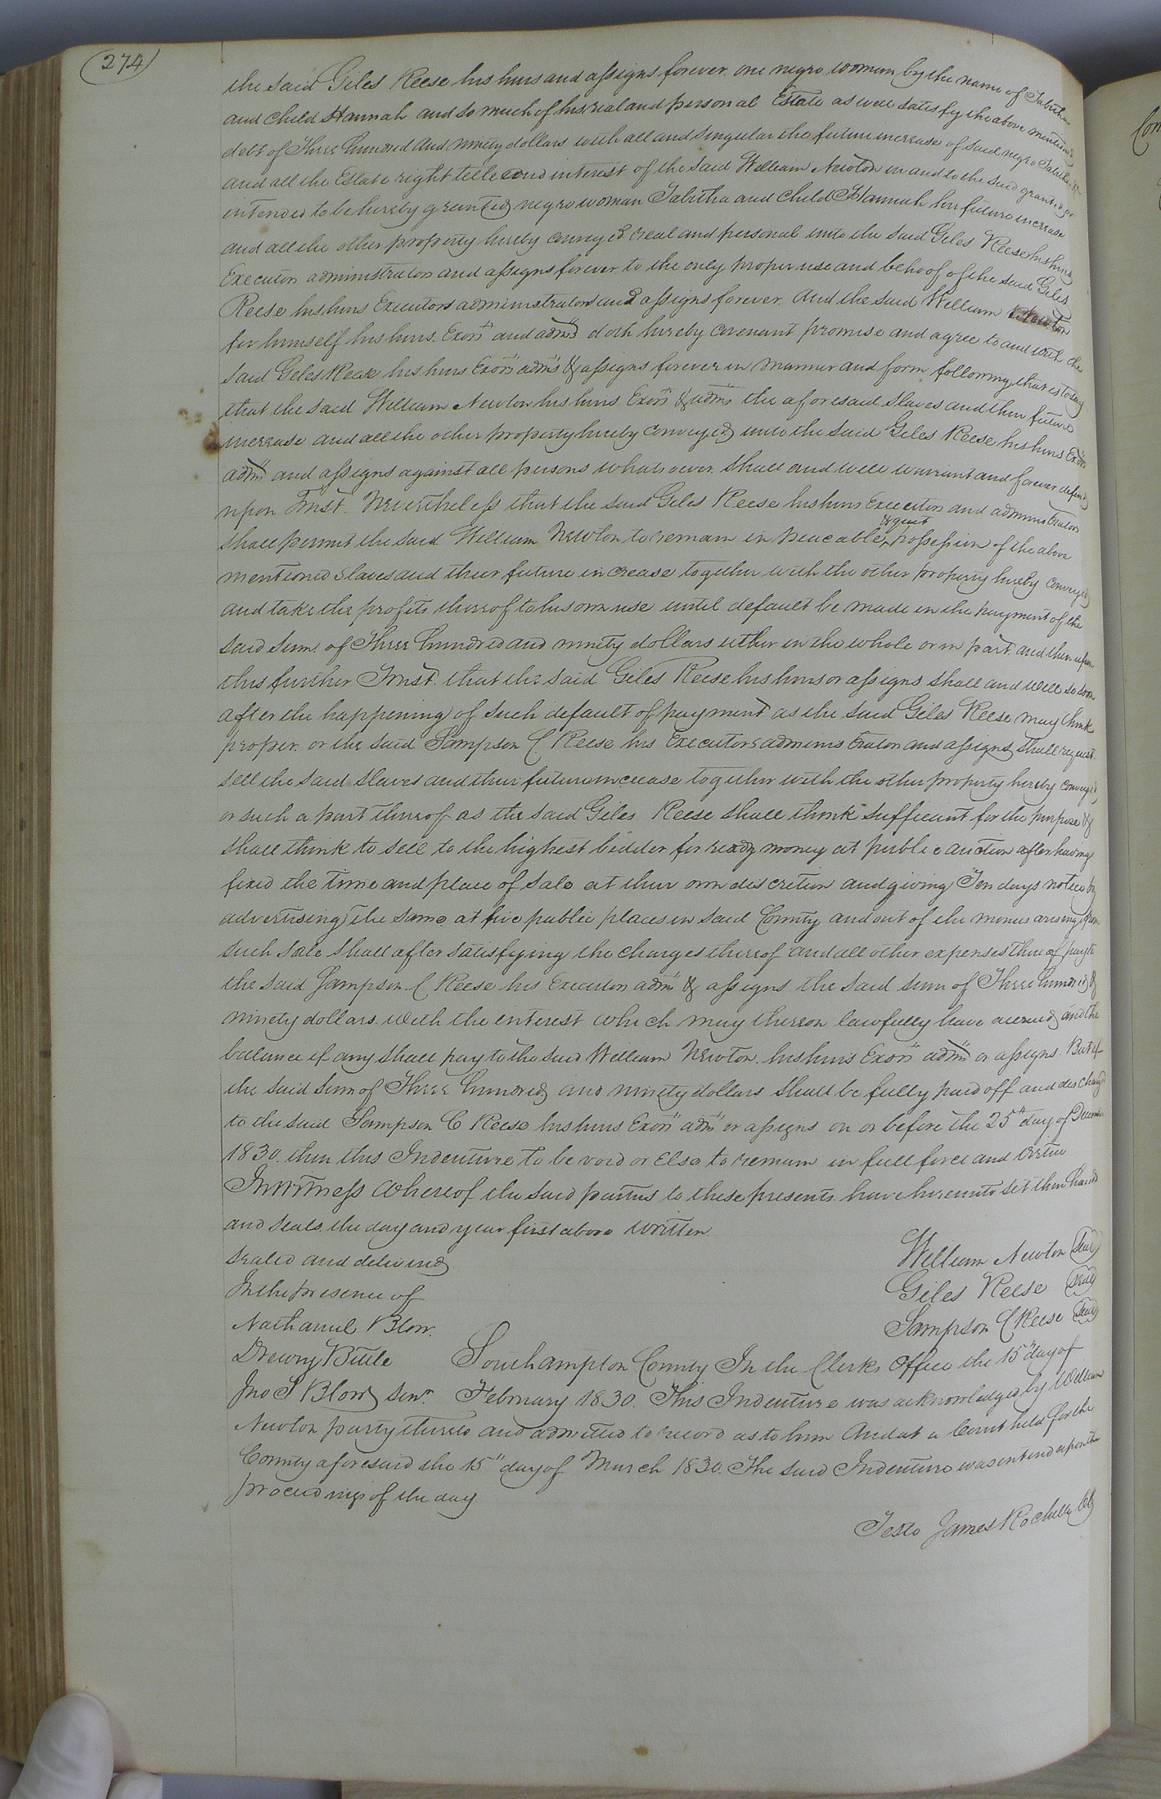 274
the said Giles Reese his heirs and assigns forever. one negro woman by the name of Tabitha
and Child Hannah and so much of his real and personal Estate as will satisfy the above mentioned
debt of Three hundred and ninety dollars with all and singular the future increase of said negro Tabitha
and all the Estate right title and interest of the said William Newton in and to the said granted or
intended to be hereby granted negro woman Tabitha and Child Hannah her future increase
and all the other property hereby conveyed real and personal unto the said Giles Reese his heirs
Executors administrators and assigns forever to the only proper use and behoof of the said Giles
Reese his heirs Executors administrators and assigns forever. And the said William Newton
for himself his heirs. Exors and adms doth hereby covenant promise and agree to and with the
said Giles Reese his heirs Exors adms & assigns forever in manner and form following, that is to say
that the said William Newton his heirs Exors & adms the aforesaid slaves and their future
increase and all the other property hereby conveyed unto the said Giles Reese his heirs Exors
adms and assigns against all persons whatsoever shall and will warrant and forever defend
upon Trust. Nevertheless that the said Giles Reese his heirs Executors and administrators
shall permit the said William Newton to remain in peaceable & quiet possession of the above
mentioned slaves and their future increase together with the other property hereby conveyed
and take the profits thereof to his own use until default be made in the payment of the
said sum of Three hundred and ninety dollars either in the whole or in part. and then upon
this further Trust. that the said Giles Reese his heirs or assigns shall and will so soon
after the happening of such default of payment as the said Giles Reese may think
proper. or the said Sampson C Reese his Executors administrators and assigns shall request.
sell the said slaves and their future increase together with the other property hereby conveyed
or such a part thereof as the said Giles Reese shall think sufficient for the purpose &
shall think to sell to the highest bidder for ready money at public auction after having
fixed the time and place of sale at their own discretion and giving Ten days notice by
advertising the same at five public places in said County and out of the monies arising from
such sale shall after satisfying the charges thereof and all other expenses thereof pay to
the said Sampson C Reese his Executors adms & assigns the said sum of Three hundred &
ninety dollars. with the interest which may thereon lawfully have accrued and the
balance if any shall pay to the said William Newton. his heirs Exors adms or assigns. But if
the said sum of Three hundred and ninety dollars shall be fully paid off and discharged
to the said Sampson C Reese his heirs Exors adms or assigns on or before the 25th day of December
1830. then this Indenture to be void or Else to remain in full force and virtue
In witness whereof the said parties to these presents have hereunto set their hands
and seals the day and year first above written
Sealed and delivered William Newton Seal
In the presence of Giles Reese Seal
Nathaniel Blow. Sampson C Reese Seal
Drewry Bittle Southampton County In the Clerks Office the 15th day of
Jno T Blow Senr. February 1830. This Indenture was acknowledged by William
Newton party thereto and admitted to record as to him And at a Court held for the
County aforesaid the 15th day of March 1830. The said Indenture was entered upon the
proceedings of the day
Teste James Rochelle Clk